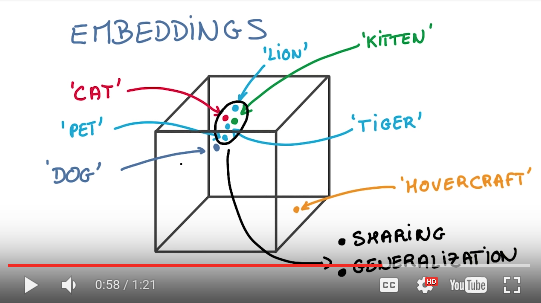 EMBEDDINGS
'LION'
'KITTEN'
'CAT'
'PET'
'TIGER'
'DOG'
'HOVERCRAFT'
• SHARING
• GENERALIZATION
0:58 / 1:21
CC
HD
YouTube